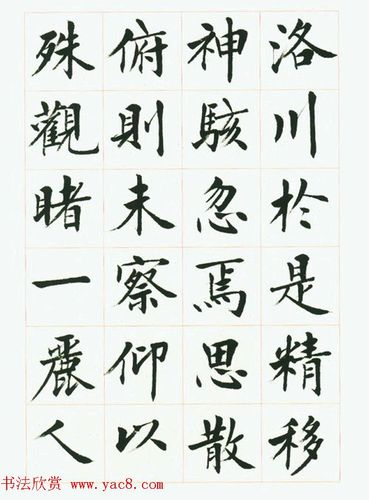 洛川於是精移
神駭忽焉思散
俯則未察仰以
殊觀睹一麗人
书法欣赏 www.yac8.com